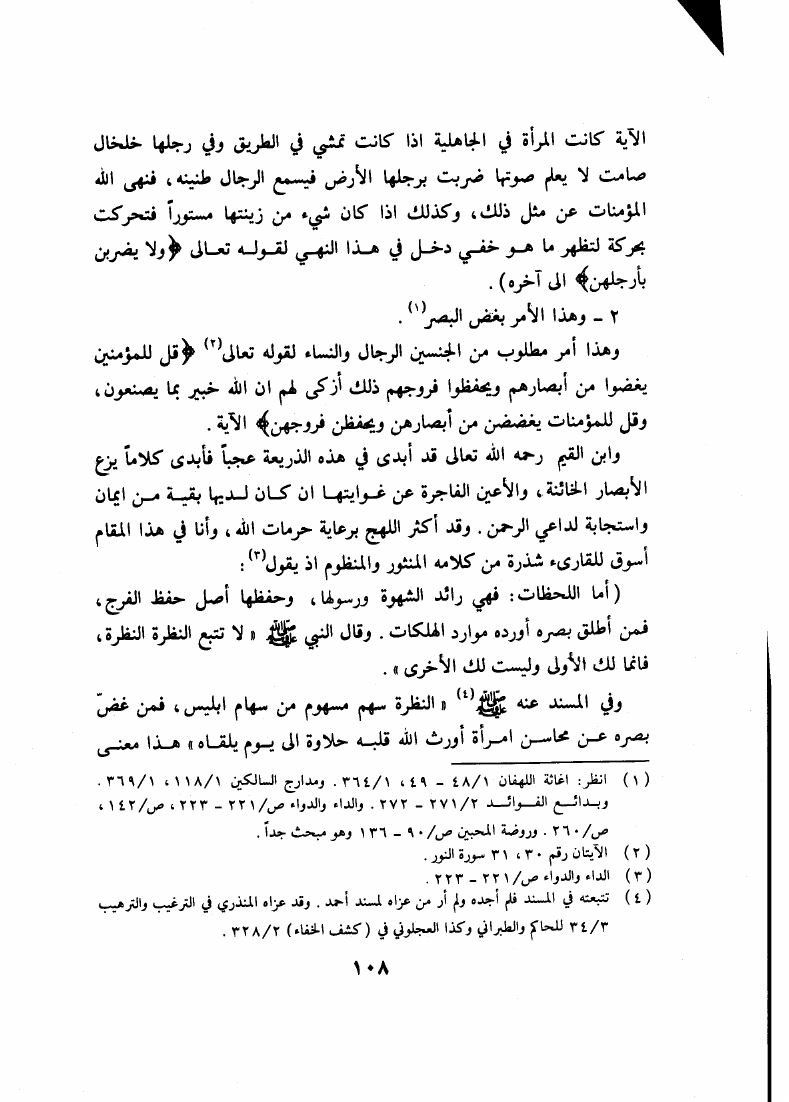 الآية كانت المرأة في الجاهلية اذا كانت تمشي في الطريق وفي رجلها خلخال
صامت لا يعلم صوتها ضربت برجلها الأرض فيسمع الرجال طنينه ، فنهى الله
المؤمنات عن مثل ذلك ، وكذلك اذا كان شيء من زينتها مستوراً فتحركت
بحركة لتظهر ما هو خفي دخل في هذا النهي لقوله تعالى ﴿ولا يضربن
بأرجلهن﴾ الى آخره) .
٢ - وهذا الأمر بغض البصر(١) .
وهذا أمر مطلوب من الجنسين الرجال والنساء لقوله تعالى(٢) ﴿قل للمؤمنين
يغضوا من أبصارهم ويحفظوا فروجهم ذلك أزكى لهم ان الله خبير بما يصنعون ،
وقل للمؤمنات يغضضن من أبصارهن ويحفظن فروجهن﴾ الآية .
وابن القيم رحمه الله تعالى قد أبدى في هذه الذريعة عجباً فأبدى كلاماً يزع
الأبصار الخائنة ، والأعين الفاجرة عن غوايتها ان كان لديها بقية من ايمان
واستجابة لداعي الرحمن . وقد أكثر اللهج برعاية حرمات الله ، وأنا في هذا المقام
أسوق للقارىء شذرة من كلامه المنثور والمنظوم اذ يقول(٣) :
(أما اللحظات : فهي رائد الشهوة ورسولها ، وحفظها أصل حفظ الفرج ،
فمن أطلق بصره أورده موارد الهلكات . وقال النبي ﷺ « لا تتبع النظرة النظرة ،
فانما لك الأولى وليست لك الأخرى » .
وفي المسند عنه ﷺ(٤) « النظرة سهم مسهوم من سهام ابليس ، فمن غضّ
بصره عن محاسن امرأة أورث الله قلبه حلاوة الى يوم يلقاه » هذا معنى
(١) انظر : اغاثة اللهفان ٤٨/١ - ٤٩ ، ٣٦٤/١ . ومدارج السالكين ١١٨/١ ، ٣٦٩/١ .
وبدائع الفوائد ٢٧١/٢ - ٢٧٢ . والداء والدواء ص/٢٢١ - ٢٢٣ ، ص/١٤٢ ،
ص/٢٦٠ . وروضة المحبين ص/٩٠ - ١٣٦ وهو مبحث جداً .
(٢) الآيتان رقم ٣٠ ، ٣١ سورة النور .
(٣) الداء والدواء ص/٢٢١ - ٢٢٣ .
(٤) تتبعته في المسند فلم أجده ولم أر من عزاه لمسند أحمد . وقد عزاه المنذري في الترغيب والترهيب
٣٤/٣ للحاكم والطبراني وكذا العجلوني في (كشف الخفاء) ٣٢٨/٢ .
١٠٨